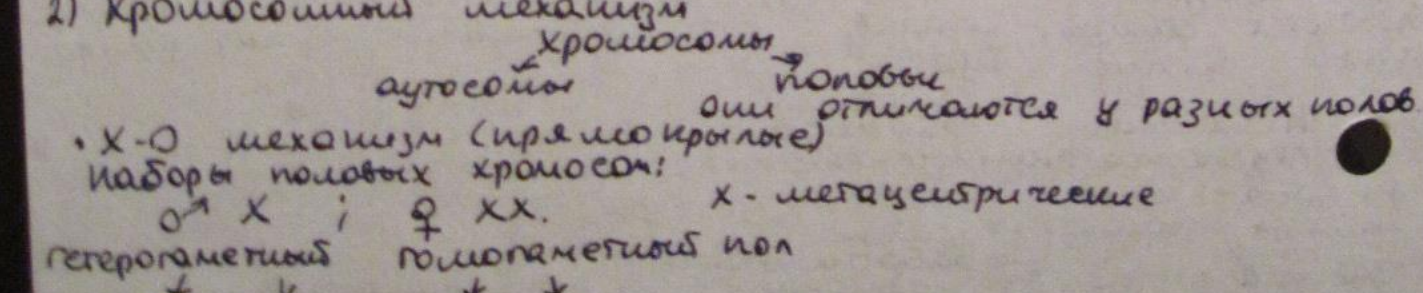 2) Хромосомный механизм
хромосомы
аутосомы половые
они отличаются у разных полов
• X-O механизм (прямокрылые)
Наборы половых хромосом:
♂ X ; ♀ XX. X - метацентрические
гетерогаметный гомогаметный пол